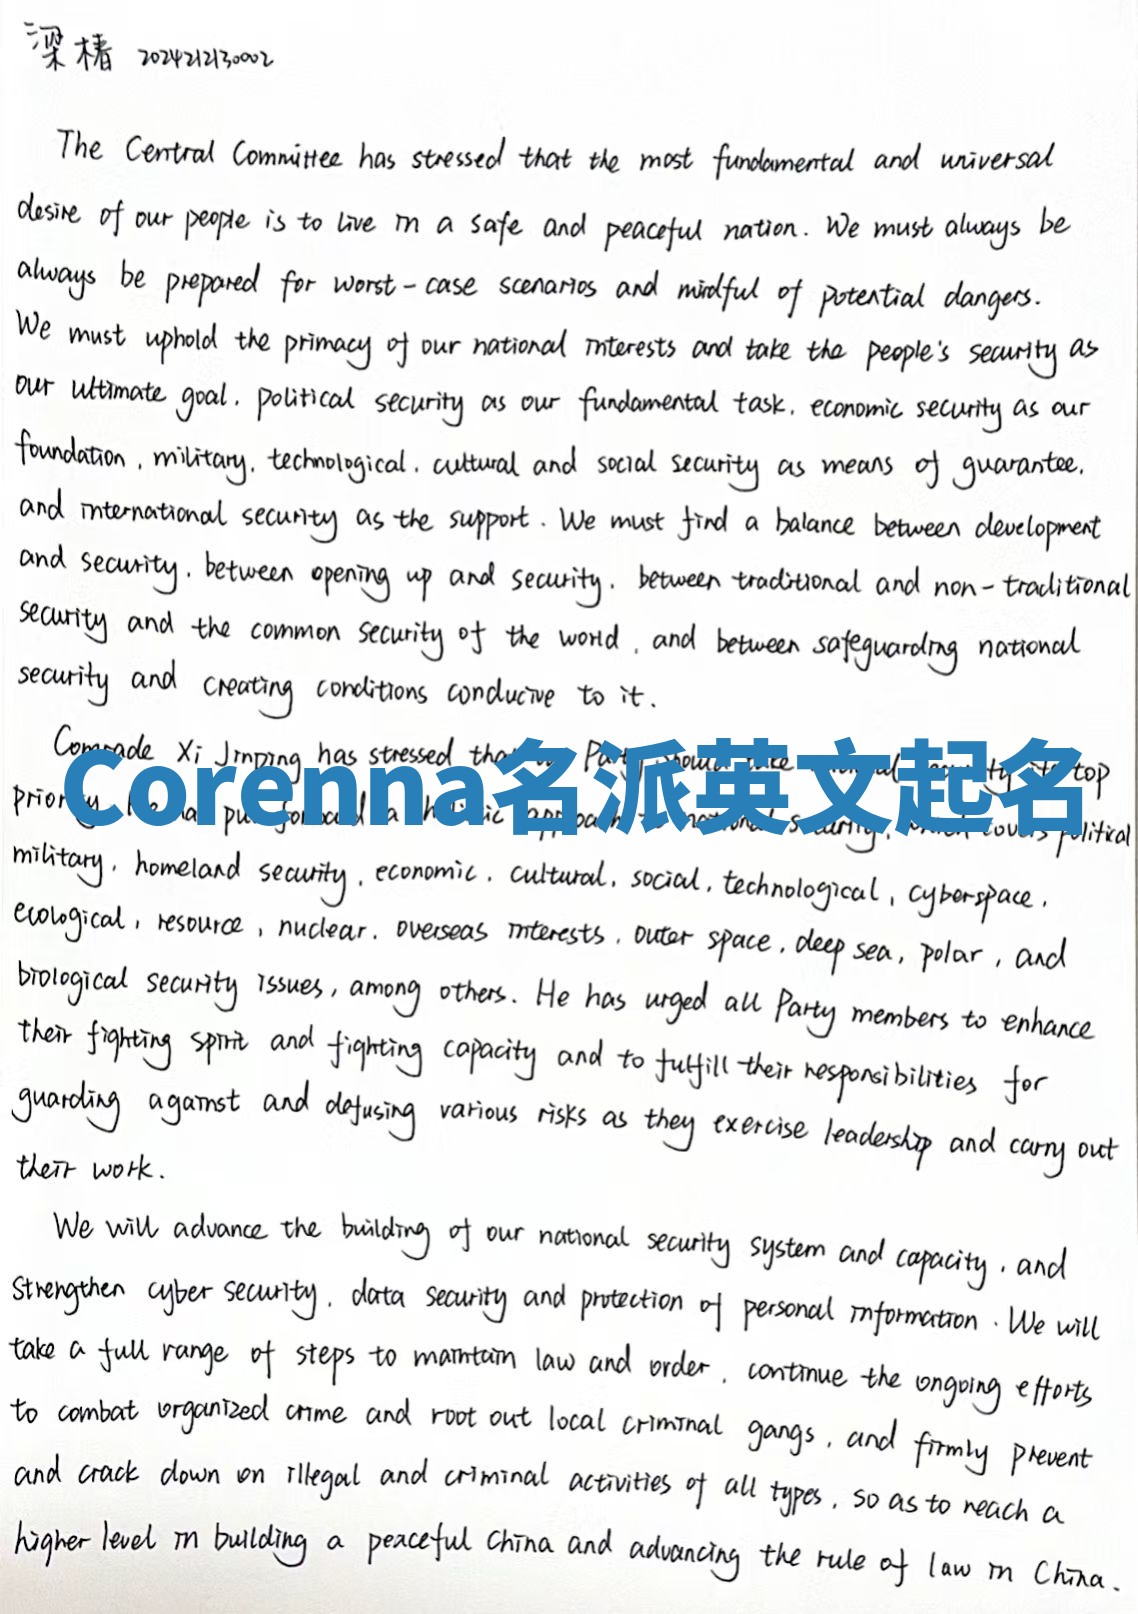 梁椿 2024212130002
The Central Committee has stressed that the most fundamental and universal
desire of our people is to live in a safe and peaceful nation. We must always be
always be prepared for worst-case scenarios and mindful of potential dangers.
We must uphold the primacy of our national interests and take the people's security as
our ultimate goal, political security as our fundamental task, economic security as our
foundation, military, technological, cultural and social security as means of guarantee,
and international security as the support. We must find a balance between development
and security, between opening up and security, between traditional and non-traditional
security and the common security of the world, and between safeguarding national
security and creating conditions conducive to it.
Comrade Xi Jinping has stressed that Party should take security its top
Corenna名派英文起名
priority. He has put forward a holistic approach to national security, which covers political
military, homeland security, economic, cultural, social, technological, cyberspace,
ecological, resource, nuclear, overseas interests, outer space, deep sea, polar, and
biological security issues, among others. He has urged all Party members to enhance
their fighting spirit and fighting capacity and to fulfill their responsibilities for
guarding against and defusing various risks as they exercise leadership and carry out
their work.
We will advance the building of our national security system and capacity, and
strengthen cyber security, data security and protection of personal information. We will
take a full range of steps to maintain law and order, continue the ongoing efforts
to combat organized crime and root out local criminal gangs, and firmly prevent
and crack down on illegal and criminal activities of all types, so as to reach a
higher level in building a peaceful China and advancing the rule of law in China.